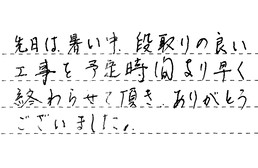 先日は、暑い中、段取りの良い
工事を予定時間より早く
終わらせて頂き、ありがとう
ございました。